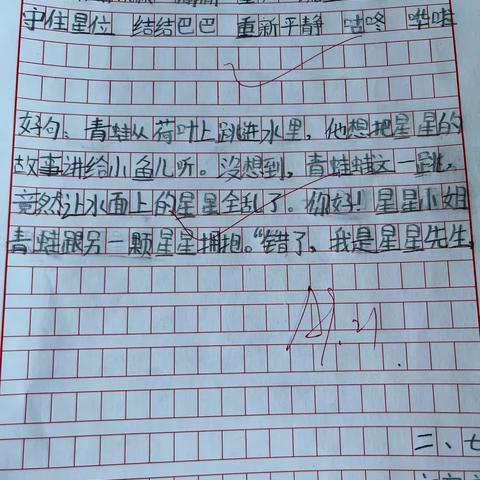 守住星位 结结巴巴 重新平静 咕咚 哗啦
好句：青蛙从荷叶上跳进水里，他想把星星的
故事讲给小鱼儿听。没想到，青蛙这一跳，
竟然让水面上的星星全乱了。你好！星星小姐
青蛙跟另一颗星星拥抱。“错了，我是星星先生，
二、七